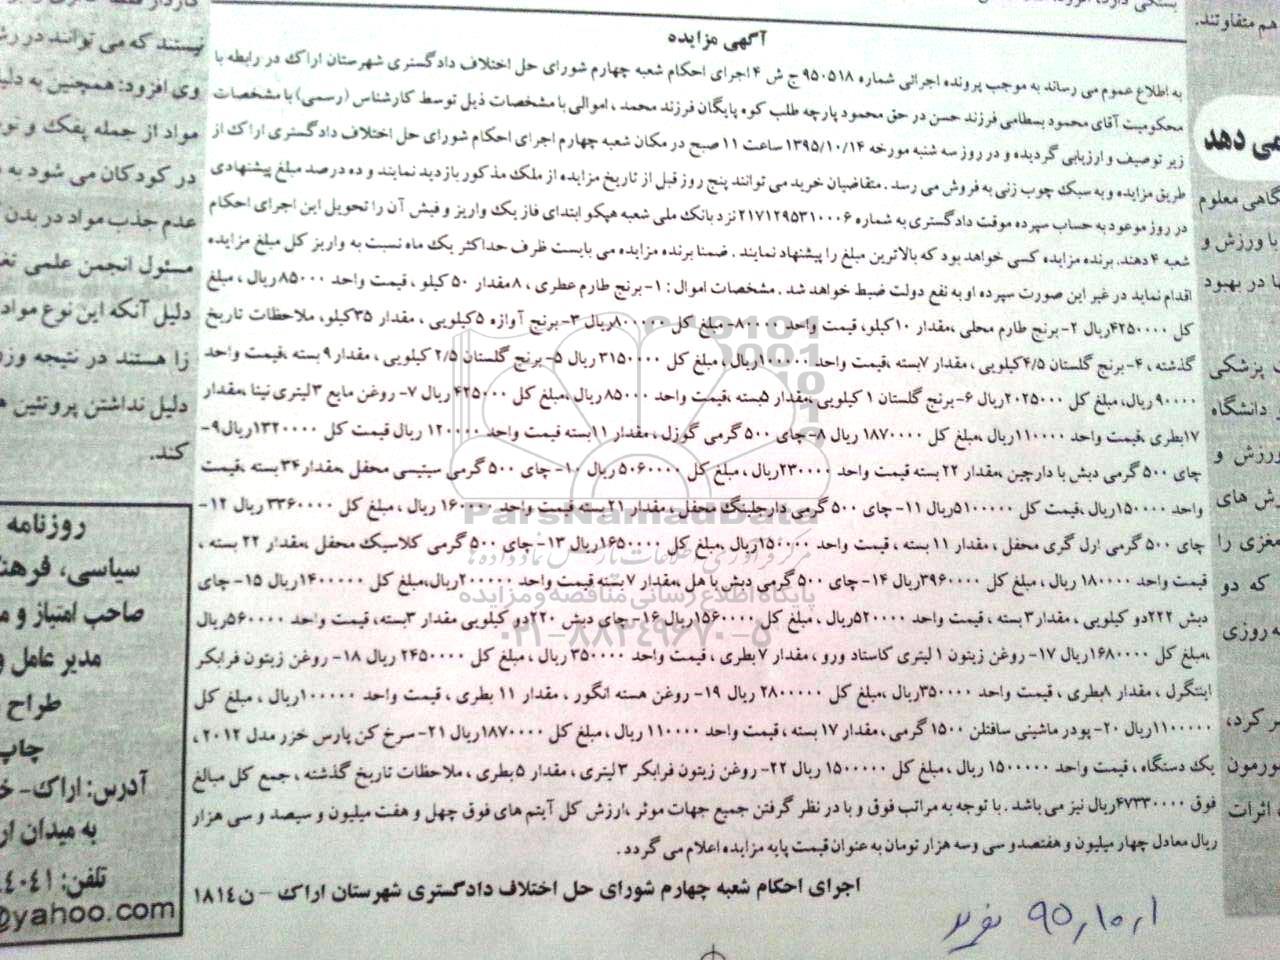 آگهی مزایده
به اطلاع عموم می رساند به موجب پرونده اجرائی شماره ۹۵۰۵۱۸ ج ش ۴ اجرای احکام شعبه چهارم شورای حل اختلاف دادگستری شهرستان اراک در رابطه با
محکومیت آقای محمود بسطامی فرزند حسن در حق محمود پارچه طلب کوه پایگان فرزند محمد ، اموالی با مشخصات ذیل توسط کارشناس (رسمی) با مشخصات
زیر توصیف و ارزیابی گردیده و در روز سه شنبه مورخه ۱۳۹۵/۱۰/۱۴ ساعت ۱۱ صبح در مکان شعبه چهارم اجرای احکام شورای حل اختلاف دادگستری اراک از
طریق مزایده و به سبک چوب زنی به فروش می رسد . متقاضیان خرید می توانند پنج روز قبل از تاریخ مزایده از ملک مذکور بازدید نمایند و ده درصد مبلغ پیشنهادی
در روز موعود به حساب سپرده موقت دادگستری به شماره ۲۱۷۱۲۹۵۳۱۰۰۰۶ نزد بانک ملی شعبه هپکو ابتدای فاز یک واریز و فیش آن را تحویل این اجرای احکام
شعبه ۴ دهند. برنده مزایده کسی خواهد بود که بالاترین مبلغ را پیشنهاد نمایند . ضمنا برنده مزایده می بایست ظرف حداکثر یک ماه نسبت به واریز کل مبلغ مزایده
اقدام نماید در غیر این صورت سپرده او به نفع دولت ضبط خواهد شد . مشخصات اموال : ۱- برنج طارم عطری ، ۸ مقدار ۵۰ کیلو ، قیمت واحد ۸۵۰۰۰ ریال ، مبلغ
کل ۴۲۵۰۰۰۰ریال ۲- برنج طارم محلی ،مقدار ۱۰ کیلو، قیمت واحد ۸۰۰۰۰- مبلغ کل ۸۰۰۰۰۰ریال ۳- برنج آوازه ۵ کیلویی ، مقدار ۳۵ کیلو، ملاحظات تاریخ
گذشته ، ۴- برنج گلستان ۴/۵ کیلویی ، مقدار ۷ بسته ،قیمت واحد ۱۰۰۰۰۰ریال ، مبلغ کل ۳۱۵۰۰۰۰ ریال ۵- برنج گلستان ۲/۵ کیلویی ، مقدار ۹ بسته ،قیمت واحد
۹۰۰۰۰ ریال، مبلغ کل ۲۰۲۵۰۰۰ریال ۶- برنج گلستان ۱ کیلویی ،مقدار ۵بسته ،قیمت واحد ۸۵۰۰۰ ریال ،مبلغ کل ۴۲۵۰۰۰ ریال ۷- روغن مایع ۳ لیتری نینا ،مقدار
۱۷بطری ،قیمت واحد ۱۱۰۰۰۰ریال ،مبلغ کل ۱۸۷۰۰۰۰ ریال ۸- چای ۵۰۰ گرمی گوزل ، مقدار ۱۱بسته قیمت واحد ۱۲۰۰۰۰ ریال قیمت کل ۱۳۲۰۰۰۰ریال۹-
چای ۵۰۰ گرمی دبش با دارچین ،مقدار ۲۲ بسته قیمت واحد ۲۳۰۰۰۰ریال ، مبلغ کل ۵۰۶۰۰۰۰ ریال ۱۰- چای ۵۰۰ گرمی سیتیسی محفل ،مقدار ۳۴ بسته ،قیمت
واحد ۱۵۰۰۰۰ریال ،قیمت کل ۵۱۰۰۰۰۰ریال ۱۱- چای ۵۰۰ گرمی دارجلینگ محفل ، مقدار ۲۱ بسته قیمت واحد ۱۶۰۰۰۰ ریال ، مبلغ کل ۳۳۶۰۰۰۰ ریال ۱۲-
چای ۵۰۰ گرمی ارل گری محفل ، مقدار ۱۱ بسته ، قیمت واحد ۱۵۰۰۰۰ریال ،مبلغ کل ۱۶۵۰۰۰۰ریال ۱۳- چای ۵۰۰ گرمی کلاسیک محفل ،مقدار ۲۲ بسته ،
قیمت واحد ۱۸۰۰۰۰ ریال ، مبلغ کل ۳۹۶۰۰۰۰ریال ۱۴- چای ۵۰۰ گرمی دبش با هل ،مقدار ۷ بسته قیمت واحد ۲۰۰۰۰۰ریال،مبلغ کل ۱۴۰۰۰۰۰ریال ۱۵- چای
دبش ۲۲۲دو کیلویی ، مقدار ۳ بسته ، قیمت واحد ۵۲۰۰۰۰ریال ، مبلغ کل ۱۵۶۰۰۰۰ریال ۱۶- چای دبش ۲۲۰دو کیلویی مقدار ۳بسته، قیمت واحد ۵۶۰۰۰۰ریال
،مبلغ کل ۱۶۸۰۰۰۰ریال ۱۷- روغن زیتون ۱ لیتری کاستاد ورو ، مقدار ۷ بطری ، قیمت واحد ۳۵۰۰۰۰ ریال ، مبلغ کل ۲۴۵۰۰۰۰ ریال ۱۸- روغن زیتون فرابکر
اینتگرل ، مقدار ۸بطری ، قیمت واحد ۳۵۰۰۰۰ریال ،مبلغ کل ۲۸۰۰۰۰۰ ریال ۱۹- روغن هسته انگور ، مقدار ۱۱ بطری ، قیمت واحد ۱۰۰۰۰۰ریال ، مبلغ کل
۱۱۰۰۰۰۰ریال ۲۰- پودر ماشینی سافتلن ۱۵۰۰ گرمی ، مقدار ۱۷ بسته ، قیمت واحد ۱۱۰۰۰۰ ریال ، مبلغ کل ۱۸۷۰۰۰۰ریال ۲۱- سرخ کن پارس خزر مدل ۲۰۱۲ ،
یک دستگاه ، قیمت واحد ۱۵۰۰۰۰۰ ریال ، مبلغ کل ۱۵۰۰۰۰۰ ریال ۲۲- روغن زیتون فرابکر ۳ لیتری ، مقدار ۵بطری ، ملاحظات تاریخ گذشته ، جمع کل مبالغ
فوق ۴۷۳۳۰۰۰۰ریال نیز می باشد . با توجه به مراتب فوق و با در نظر گرفتن جمیع جهات موثر ،ارزش کل آیتم های فوق چهل و هفت میلیون و سیصد و سی هزار
ریال معادل چهار میلیون و هفتصد و سی و سه هزار تومان به عنوان قیمت پایه مزایده اعلام می گردد .
اجرای احکام شعبه چهارم شورای حل اختلاف دادگستری شهرستان اراک – ن ۱۸۱۴
۹۵٫۱۰٫۱
ParsNamadData
پایگاه اطلاع رسانی مناقصه و مزایده
۰۲۱-۸۸۳۴۹۶۷۰-۵
نیستند که می توانند در
وی افزود: همچنین به
مواد از جمله پفک و
در کودکان می شود به
عدم جذب مواد در بدن
مسئول انجمن علمی
دلیل آنکه این نوع مواد
زا هستند در نتیجه
دلیل نداشتن پروتئین
کند.
روزنامه
سیاسی،
صاحب امتیاز و
مدیر عامل و
طراح
چاپ
آدرس: اراک-
به میدان
تلفن:
@yahoo.com
هم متفاوتند.
می دهد
گاهی معلوم
با ورزش و
در بهبود
پزشکی
دانشگاه
ورزش و
ش های
مغزی را
که دو
روزی
کرد،
اثرات